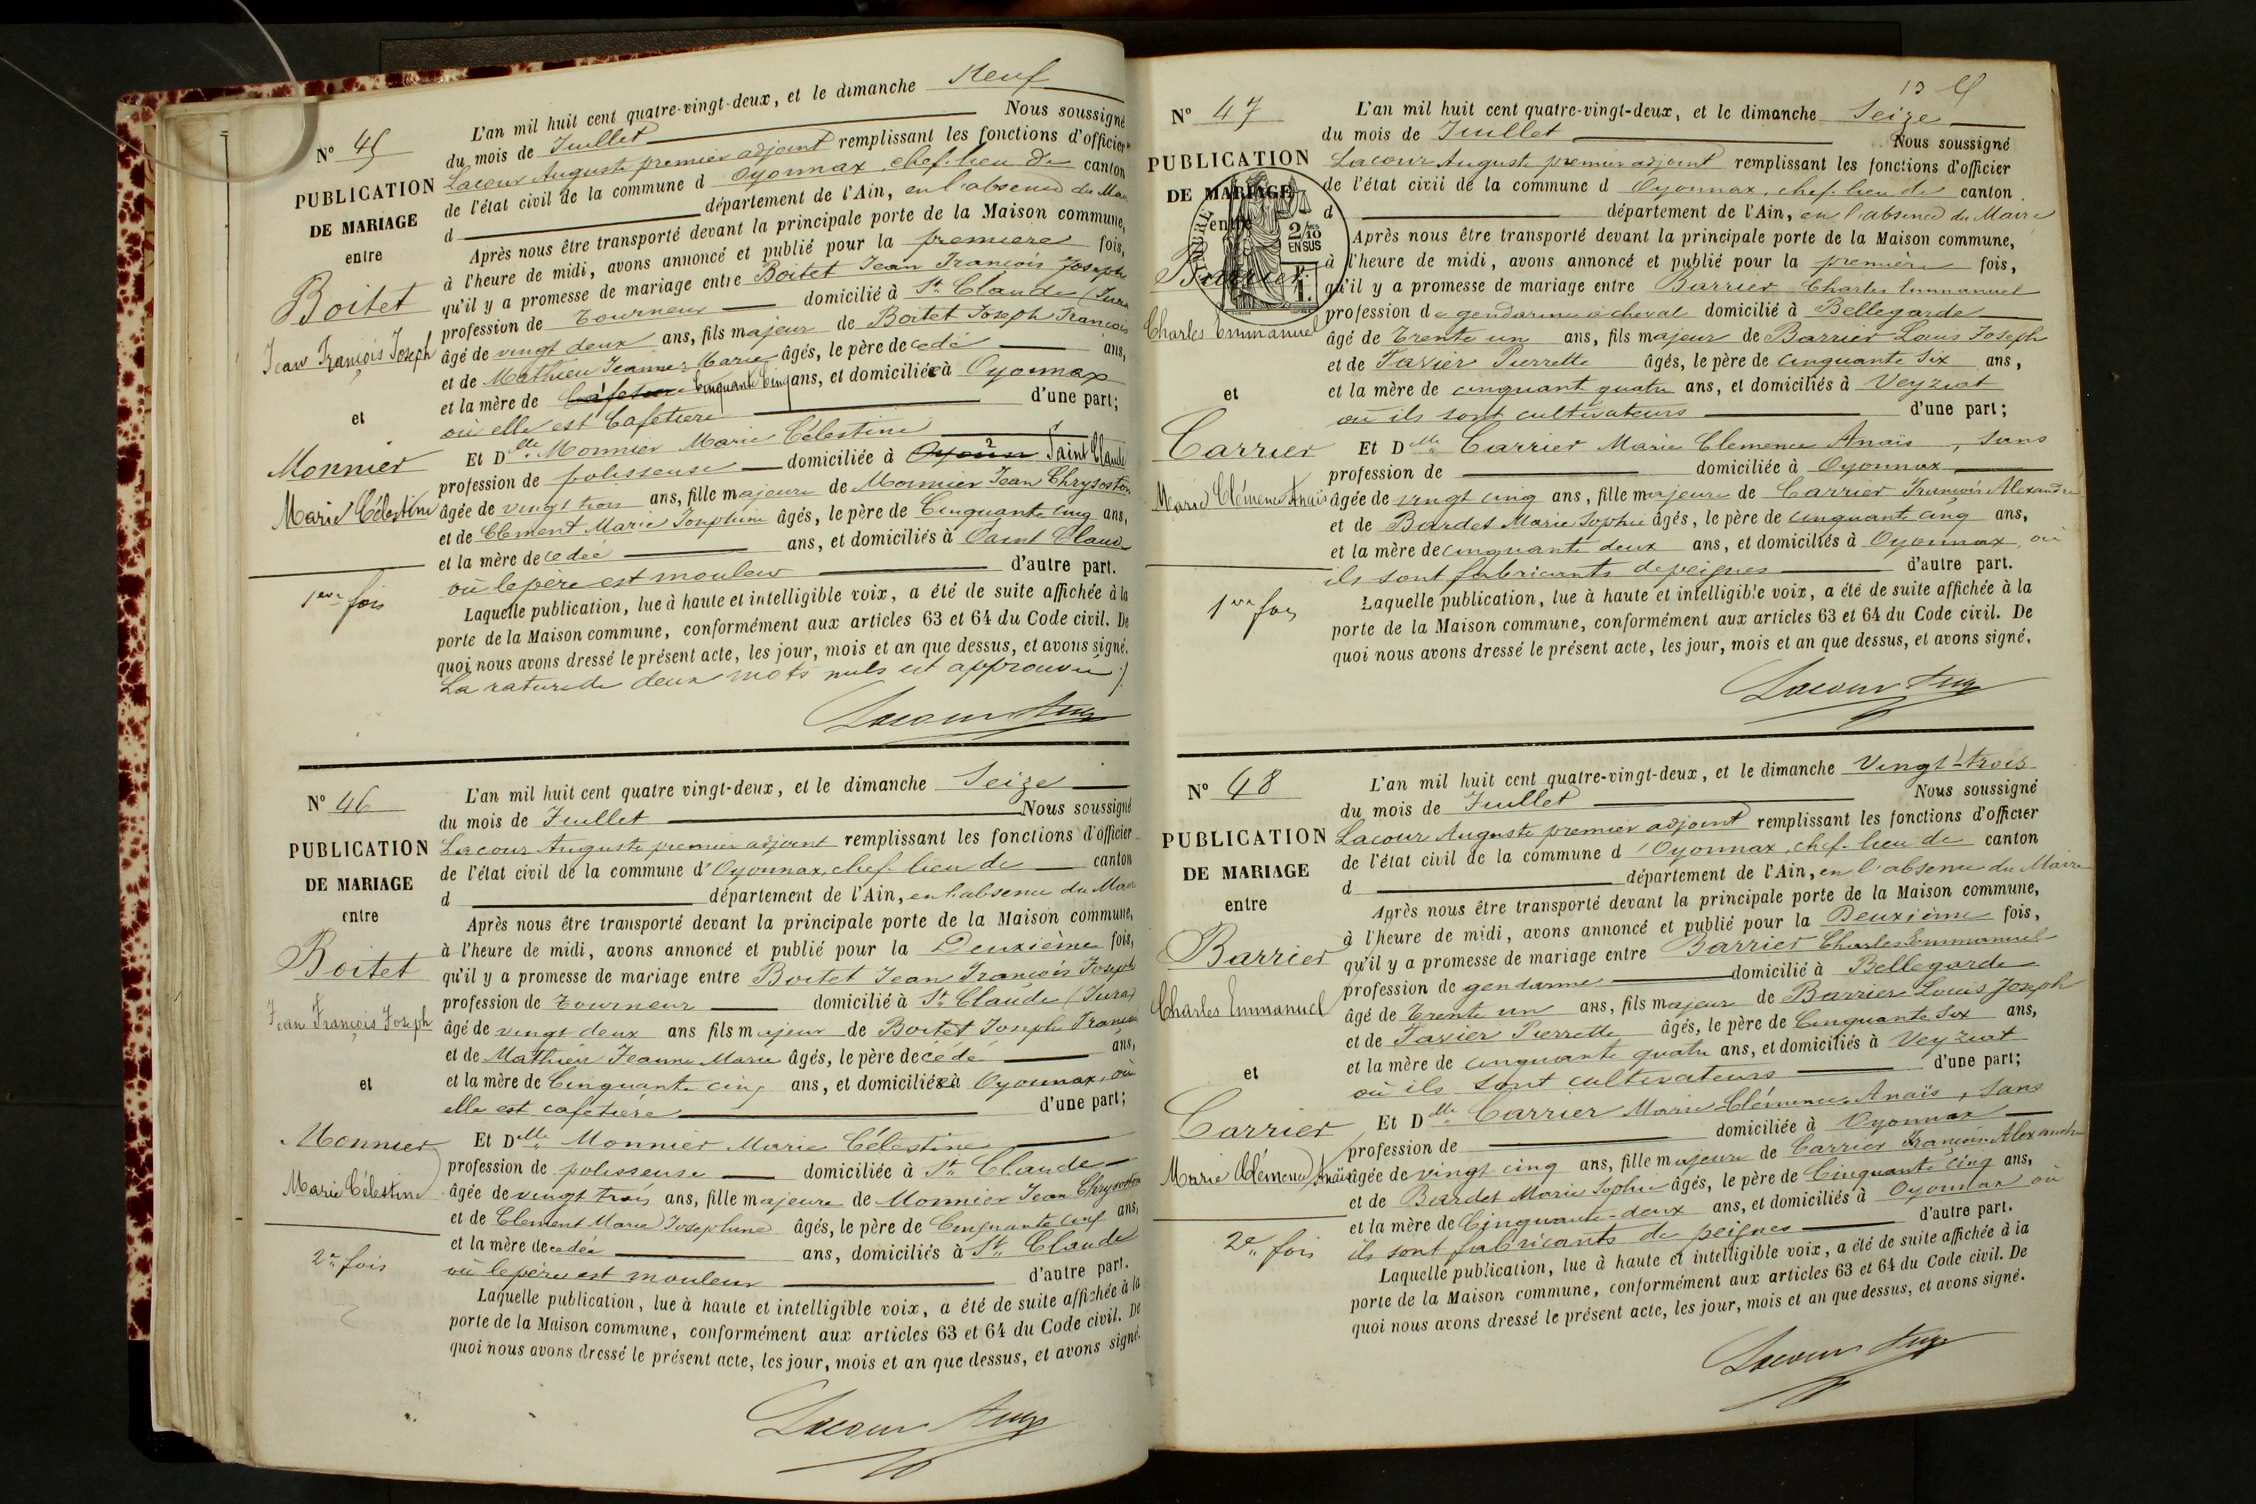 N° 45
PUBLICATION
DE MARIAGE
entre
Boitet
Jean François Joseph
et
Monnier
Marie Célestine
1ere fois
L'an mil huit cent quatre-vingt-deux, et le dimanche Neuf
du mois de Juillet Nous soussigné
Lacour Auguste premier adjoint remplissant les fonctions d'officier
de l'état civil de la commune d Oyonnax, chef-lieu de canton
d département de l'Ain, en l'absence du Mai
Après nous être transporté devant la principale porte de la Maison commune,
à l'heure de midi, avons annoncé et publié pour la première fois,
qu'il y a promesse de mariage entre Boitet Jean François Joseph
profession de Tourneur domicilié à St Claude (Jura
âgé de vingt deux ans, fils majeur de Boitet Joseph François
et de Mathieu Jeanne Marie âgés, le père decedé ans,
et la mère de Cafetiere Cinquante Cinq ans, et domiciliée à Oyonnax
où elle est Cafetiere d'une part;
Et Dlle Monnier Marie Célestine
profession de polisseuse domiciliée à Oyonn Saint Claude
âgée de vingt trois ans, fille majeure de Monnier Jean Chrysostom
et de Clement Marie Josephine âgés, le père de Cinquante cinq ans,
et la mère decedée ans, et domiciliés à Saint Claude
où le père est mouleur d'autre part.
Laquelle publication, lue à haute et intelligible voix, a été de suite affichée à la
porte de la Maison commune, conformément aux articles 63 et 64 du Code civil. De
quoi nous avons dressé le présent acte, les jour, mois et an que dessus, et avons signé.
La rature de deux mots nuls est approuvée
Lacour Aug
N° 46
PUBLICATION
DE MARIAGE
entre
Boitet
Jean François Joseph
et
Monnier
Marie Célestine
2e fois
L'an mil huit cent quatre vingt-deux, et le dimanche Seize
du mois de Juillet Nous soussigné
Lacour Auguste premier adjoint remplissant les fonctions d'officier
de l'état civil de la commune d'Oyonnax, chef-lieu de canton
d département de l'Ain, en l'absence du Maire
Après nous être transporté devant la principale porte de la Maison commune,
à l'heure de midi, avons annoncé et publié pour la Deuxième fois,
qu'il y a promesse de mariage entre Boitet Jean François Joseph
profession de Tourneur domicilié à St Claude (Jura)
âgé de vingt deux ans fils majeur de Boitet Joseph François
et de Mathieu Jeanne Marie âgés, le père decédé ans,
et la mère de Cinquante cinq ans, et domiciliée à Oyonnax, où
elle est cafetière d'une part;
Et Dlle Monnier Marie Célestine
profession de polisseuse domiciliée à St Claude
âgée de vingt trois ans, fille majeure de Monnier Jean Chrysostom
et de Clement Marie Josephine âgés, le père de Cinquante cinq ans,
et la mère decedée ans, domiciliés à St Claude
où le père est mouleur d'autre part.
Laquelle publication, lue à haute et intelligible voix, a été de suite affichée à la
porte de la Maison commune, conformément aux articles 63 et 64 du Code civil. De
quoi nous avons dressé le présent acte, les jour, mois et an que dessus, et avons signé.
Lacour Aug
13
N° 47
PUBLICATION
DE MARIAGE
entre
2/10 EN SUS
Barrier
Charles Emmanuel
et
Carrier
Marie Clémence Anaïs
1ere fois
L'an mil huit cent quatre-vingt-deux, et le dimanche Seize
du mois de Juillet Nous soussigné
Lacour Auguste premier adjoint remplissant les fonctions d'officier
de l'état civil de la commune d Oyonnax, chef-lieu de canton
d département de l'Ain, en l'absence du Maire
Après nous être transporté devant la principale porte de la Maison commune,
à l'heure de midi, avons annoncé et publié pour la première fois,
qu'il y a promesse de mariage entre Barrier Charles Emmanuel
profession de gendarme à cheval domicilié à Bellegarde
âgé de Trente un ans, fils majeur de Barrier Louis Joseph
et de Tavier Pierrette âgés, le père de cinquante six ans,
et la mère de cinquant quatre ans, et domiciliés à Veyziat
où ils sont cultivateurs d'une part;
Et Dlle Carrier Marie Clemence Anaïs, sans
profession de domiciliée à Oyonnax
âgée de vingt cinq ans, fille majeure de Carrier François Alexandre
et de Bardet Marie Sophie âgés, le père de cinquante cinq ans,
et la mère de cinquante deux ans, et domiciliés à Oyonnax, où
ils sont fabricants de peignes d'autre part.
Laquelle publication, lue à haute et intelligible voix, a été de suite affichée à la
porte de la Maison commune, conformément aux articles 63 et 64 du Code civil. De
quoi nous avons dressé le présent acte, les jour, mois et an que dessus, et avons signé.
Lacour Aug
N° 48
PUBLICATION
DE MARIAGE
entre
Barrier
Charles Emmanuel
et
Carrier
Marie Clémence Anaïs
2e fois
L'an mil huit cent quatre-vingt-deux, et le dimanche Vingt-trois
du mois de Juillet Nous soussigné
Lacour Auguste premier adjoint remplissant les fonctions d'officier
de l'état civil de la commune d'Oyonnax, chef-lieu de canton
d département de l'Ain, en l'absence du Maire
Après nous être transporté devant la principale porte de la Maison commune,
à l'heure de midi, avons annoncé et publié pour la Deuxième fois,
qu'il y a promesse de mariage entre Barrier Charles Emmanuel
profession de gendarme domicilié à Bellegarde
âgé de Trente un ans, fils majeur de Barrier Louis Joseph
et de Tavier Pierrette âgés, le père de Cinquante Six ans,
et la mère de cinquante quatre ans, et domiciliés à Veyziat
où ils sont cultivateurs d'une part;
Et Dlle Carrier Marie Clémence Anaïs, sans
profession de domiciliée à Oyonnax
âgée de vingt cinq ans, fille majeure de Carrier François Alexandre
et de Bardet Marie Sophie âgés, le père de Cinquante cinq ans,
et la mère de Cinquante-deux ans, et domiciliés à Oyonnax où
ils sont fabricants de peignes d'autre part.
Laquelle publication, lue à haute et intelligible voix, a été de suite affichée à la
porte de la Maison commune, conformément aux articles 63 et 64 du Code civil. De
quoi nous avons dressé le présent acte, les jour, mois et an que dessus, et avons signé.
Lacour Aug